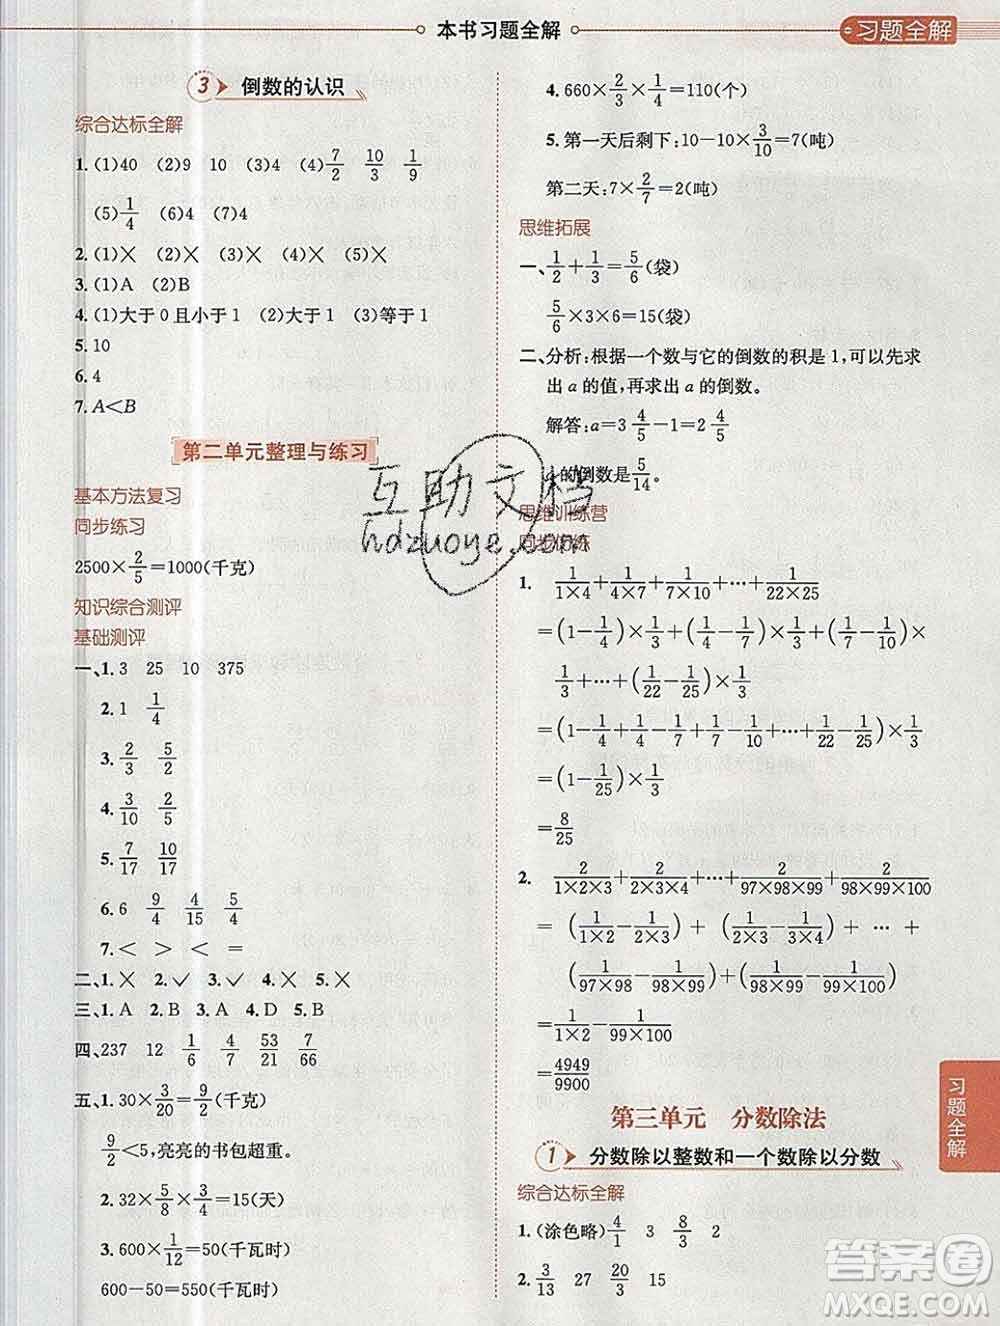 本书习题全解
习题全解
3 倒数的认识
综合达标全解
1. (1)40 (2)9 10 (3)4 (4)7/2 10/3 1/9
(5)1/4 (6)4 (7)4
2. (1)× (2)× (3)× (4)× (5)×
3. (1)A (2)B
4. (1)大于0且小于1 (2)大于1 (3)等于1
5. 10
6. 4
7. A<B
第二单元整理与练习
基本方法复习
同步练习
2500×2/5=1000(千克)
知识综合测评
基础测评
一、1. 3 25 10 375
2. 1 1/4
3. 2/3 5/2
4. 3/10 5/2
5. 7/17 10/17
6. 6 9/4 4/15 5/9
7. < > < =
二、1.× 2.✓ 3.✓ 4.× 5.×
三、1. A 2. B 3. A 4. D 5. B
四、237 12 1/6 4/7 53/21 7/66
五、1. 30×3/20=9/2(千克)
9/2<5,亮亮的书包超重。
2. 32×5/8×3/4=15(天)
3. 600×1/12=50(千瓦时)
600-50=550(千瓦时)
4. 660×2/3×1/4=110(个)
5. 第一天后剩下:10-10×3/10=7(吨)
第二天:7×2/7=2(吨)
思维拓展
一、1/2+1/3=5/6(袋)
5/6×3×6=15(袋)
二、分析:根据一个数与它的倒数的积是1,可以先求
出a的值,再求出a的倒数。
解答:a=3 4/5-1=2 4/5
的倒数是5/14。
思维训练营
同步训练
1. 1/(1×4)+1/(4×7)+1/(7×10)+…+1/(22×25)
=(1-1/4)×1/3+(1/4-1/7)×1/3+(1/7-1/10)×
1/3+…+(1/22-1/25)×1/3
=(1-1/4+1/4-1/7+1/7-1/10+…+1/22-1/25)×1/3
=(1-1/25)×1/3
=8/25
2. 2/(1×2×3)+2/(2×3×4)+…+2/(97×98×99)+2/(98×99×100)
=(1/(1×2)-1/(2×3))+(1/(2×3)-1/(3×4))+…+
(1/(97×98)-1/(98×99))+(1/(98×99)-1/(99×100))
=1/(1×2)-1/(99×100)
=4949/9900
第三单元 分数除法
1 分数除以整数和一个数除以分数
综合达标全解
1. (涂色略)4/1 3 8/3 2
2. 3/13 27 20/3 15
习题全解
互助文档
hdzuoye.com
答案圈
MXQE.COM